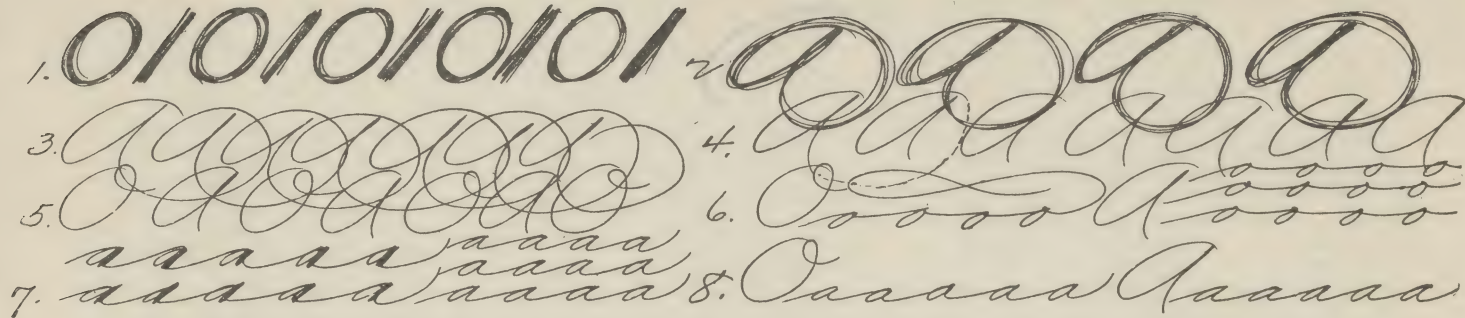 1. 0101010101
2. a a a a
3. a a a a a a a
4. a a a a a a a
5. O a O a O a O
6. O o o o o a o o o o
o o o o
o o o o
7. a a a a a a a a a
a a a a a a a a a
a a a a
8. O a a a a a a a a a a a a a